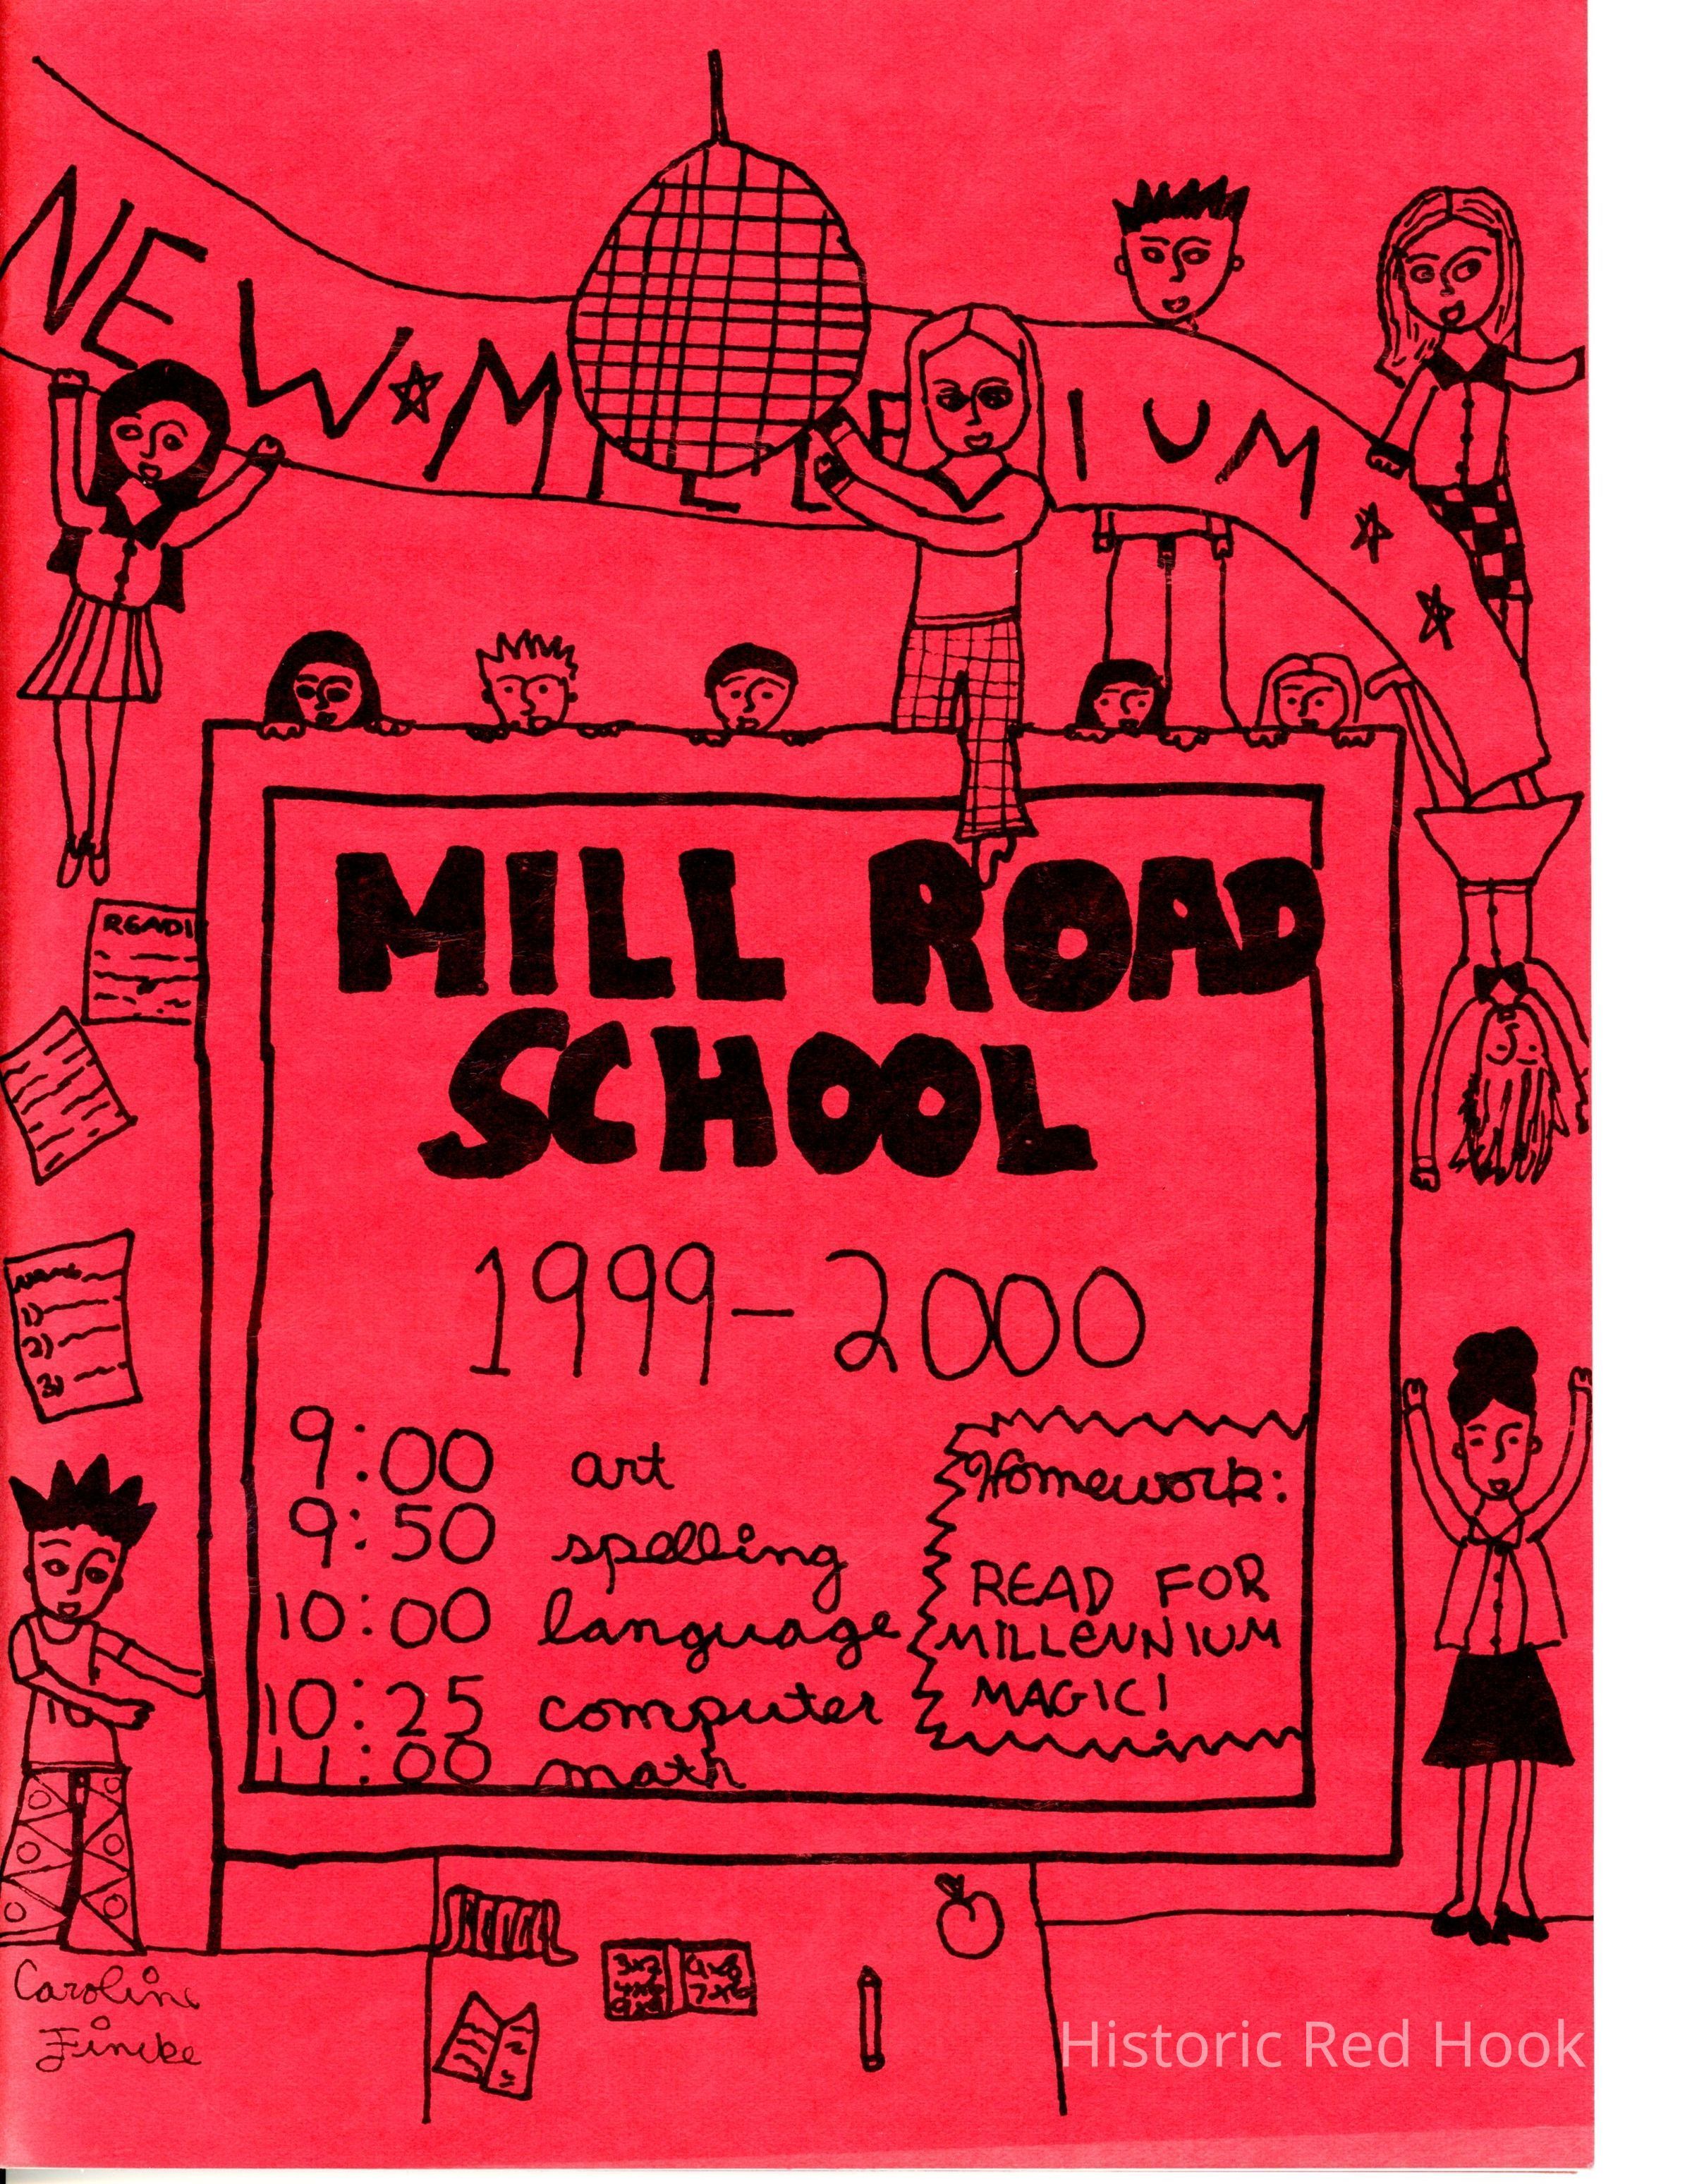 NEW☆MILLENIUM☆☆
READI
MILL ROAD
SCHOOL
1999-2000
NAME
1)
2)
3)
9:00 art
9:50 spelling
10:00 language
10:25 computer
11:00 math
Homework:
READ FOR
MILLENNIUM
MAGIC!
10
SCHOOL
3x2 9x8
4x6 7x6
9x9
Caroline
Fincke
Historic Red Hook